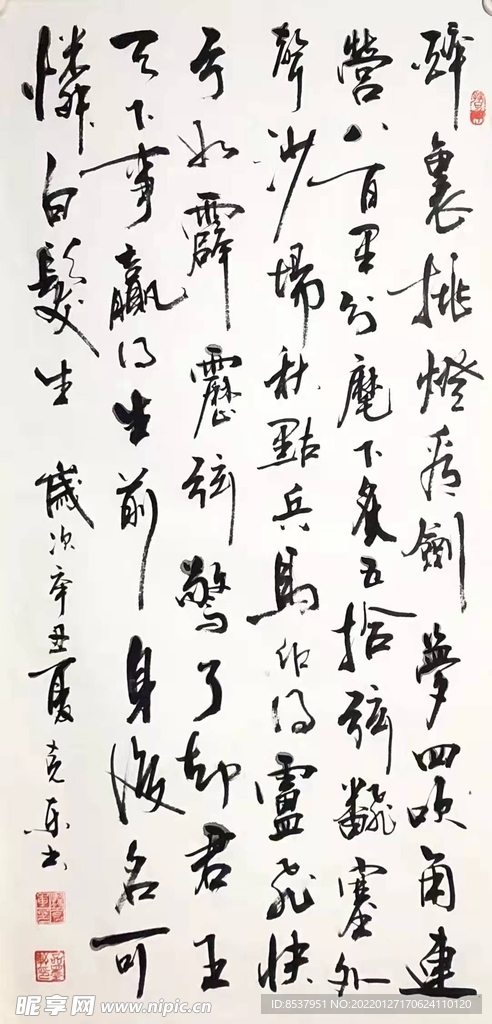 醉裏挑燈看劍夢回吹角連
營八百里分麾下炙五拾弦翻塞外
聲沙場秋點兵馬作的盧飛快
弓如霹靂弦驚了却君王
天下事贏得生前身後名可
憐白髮生 歲次辛丑夏
昵享网 www.nipic.cn
ID:8537951 NO:20220127170624110120